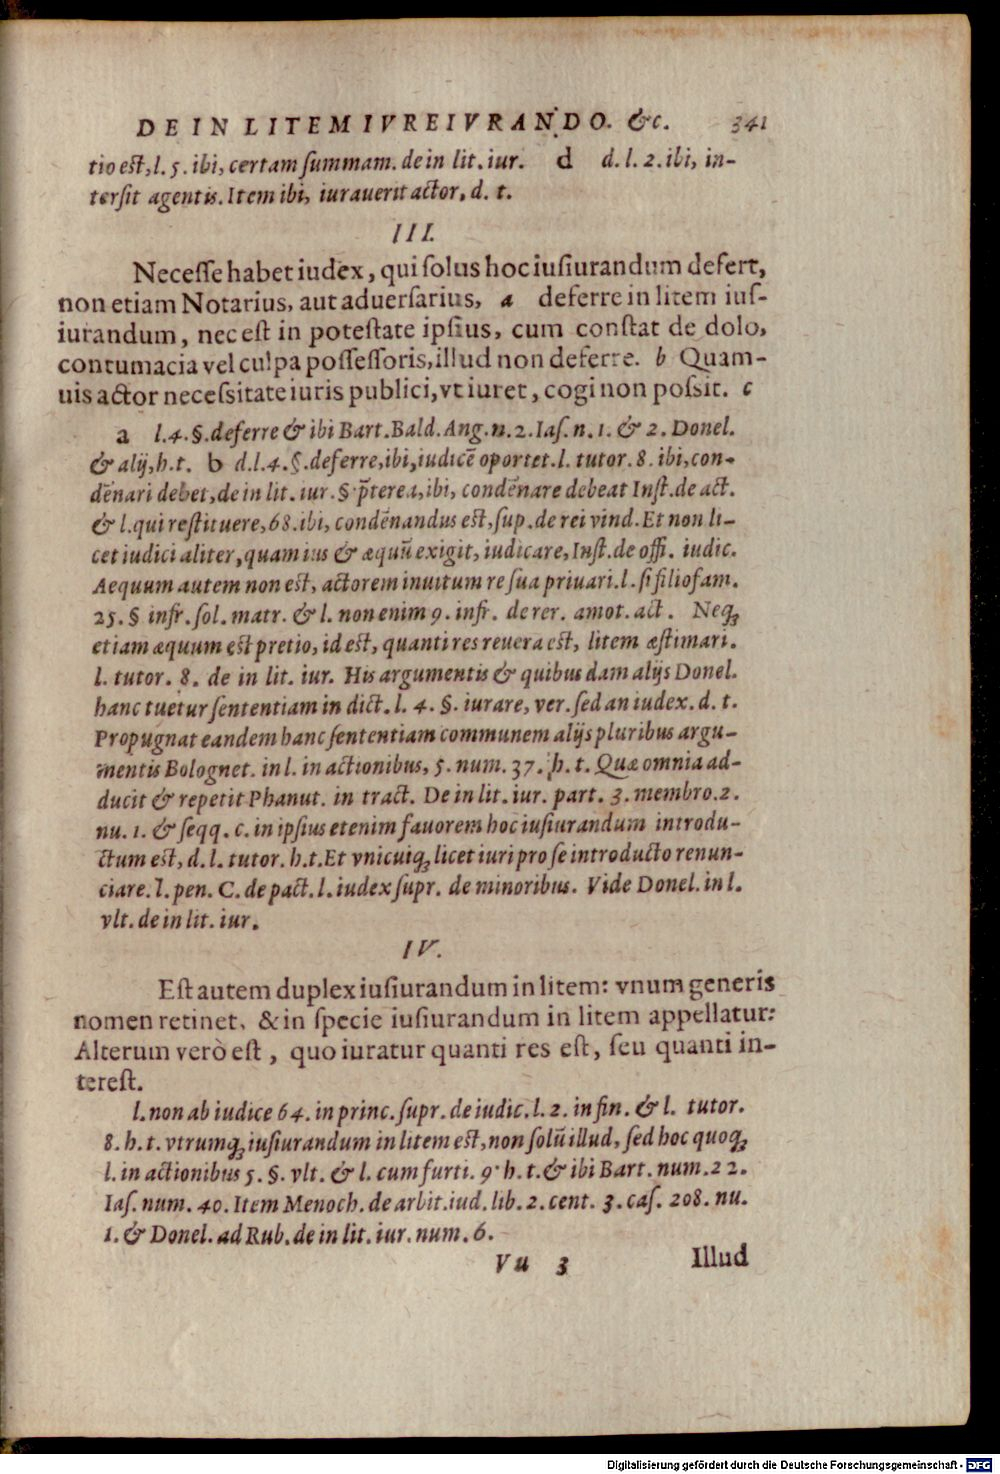 DE IN LITEM IVREIVRANDO. &c. 341
tio est, l. 5. ibi, certam summam. de in lit. iur. d d. l. 2. ibi, in-
tersit agentis. Item ibi, iurauerit actor, d. t.
III.
Necesse habet iudex, qui solus hoc iusiurandum defert,
non etiam Notarius, aut aduersarius, a deferre in litem ius-
iurandum, nec est in potestate ipsius, cum constat de dolo,
contumacia vel culpa possessoris, illud non deferre. b Quam-
uis actor necessitate iuris publici, vt iuret, cogi non possit. c
a l. 4. §. deferre & ibi Bart. Bald. Ang. n. 2. Ias. n. 1. & 2. Donel.
& alij, h. t. b d. l. 4. §. deferre, ibi, iudicē oportet. l. tutor. 8. ibi, con-
dēnari debet, de in lit. iur. § p̄terea, ibi, condēnare debeat Inst. de act.
& l. qui restituere, 68. ibi, condēnandus est, sup. de rei vind. Et non li-
cet iudici aliter, quam ius & æquū exigit, iudicare, Inst. de offi. iudic.
Aequum autem non est, actorem inuitum re sua priuari. l. si filiofam.
25. § infr. sol. matr. & l. non enim 9. infr. de rer. amot. act. Neq;
etiam æquum est pretio, id est, quanti res reuera est, litem æstimari.
l. tutor. 8. de in lit. iur. His argumentis & quibusdam alijs Donel.
hanc tuetur sententiam in dict. l. 4. §. iurare, ver. sed an iudex. d. t.
Propugnat eandem hanc sententiam communem alijs pluribus argu-
mentis Bolognet. in l. in actionibus, 5. num. 37. h. t. Quæ omnia ad-
ducit & repetit Phanut. in tract. De in lit. iur. part. 3. membro. 2.
nu. 1. & seqq. c. in ipsius etenim fauorem hoc iusiurandum introdu-
ctum est, d. l. tutor. h. t. Et vnicuiq; licet iuri pro se introducto renun-
ciare. l. pen. C. de pact. l. iudex supr. de minoribus. Vide Donel. in l.
vlt. de in lit. iur.
IV.
Est autem duplex iusiurandum in litem: vnum generis
nomen retinet, & in specie iusiurandum in litem appellatur:
Alterum verò est, quo iuratur quanti res est, seu quanti in-
terest.
l. non ab iudice 64. in princ. supr. de iudic. l. 2. in fin. & l. tutor.
8. h. t. vtrumq; iusiurandum in litem est, non solū illud, sed hoc quoq;
l. in actionibus 5. §. vlt. & l. cum furti. 9. h. t. & ibi Bart. num. 22.
Ias. num. 40. Item Menoch. de arbit. iud. lib. 2. cent. 3. cas. 208. nu.
1. & Donel. ad Rub. de in lit. iur. num. 6.
Vu 3 Illud
Digitalisierung gefördert durch die Deutsche Forschungsgemeinschaft - DFG